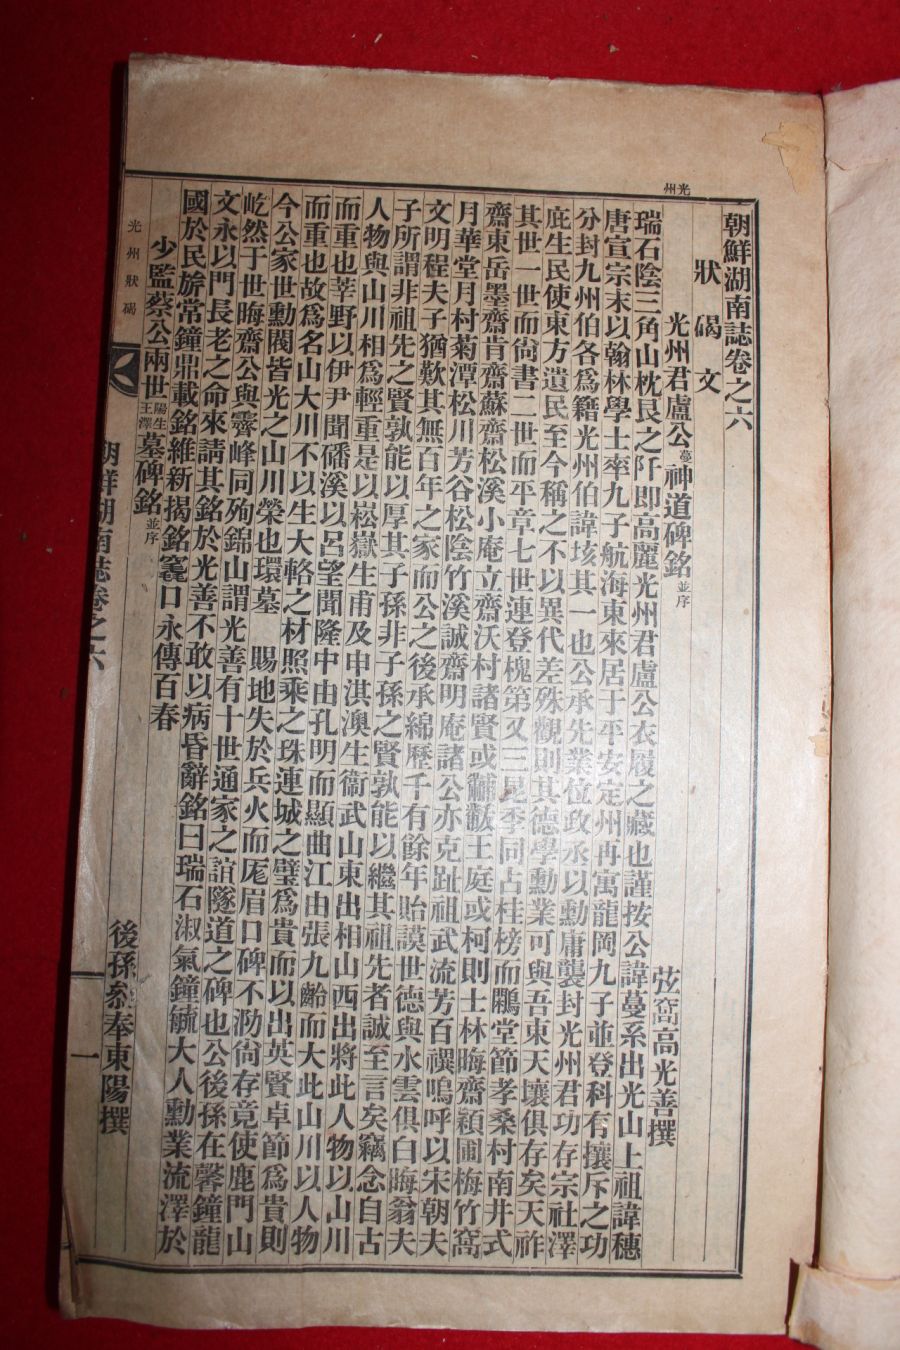 光州
朝鮮湖南誌卷之六
狀碣文
光州君盧公蔓神道碑銘並序
弦窩高光善撰
瑞石陰三角山枕艮之阡即高麗光州君盧公衣履之藏也謹按公諱蔓系出光山上祖諱穗
唐宣宗末以翰林學士率九子航海東來居于平安定州再寓龍岡九子並登科有攘斥之功
分封九州伯各爲籍光州伯諱垓其一也公承先業位政丞以勳庸襲封光州君功存宗社澤
庇生民使東方遺民至今稱之不以異代差殊觀則其德學勳業可與吾東天壤俱存矣天祚
其世一世而尙書二世而平章七世連登槐第又三昆季同占桂榜而鵬堂節孝桑村南井式
齋東岳墨齋肯齋蘇齋松溪小庵立齋沃村諸賢或黼黻王庭或柯則士林晦齋穎圃梅竹窩
月華堂月村菊潭松川芳谷松陰竹溪誠齋明庵諸公亦克趾祖武流芳百禩嗚呼以宋朝夫
文明程夫子猶歎其無百年之家而公之後承綿歷千有餘年貽謨世德與水雲俱白晦翁夫
子所謂非祖先之賢孰能以厚其子孫非子孫之賢孰能以繼其祖先者誠至言矣竊念自古
人物與山川相爲輕重是以崧嶽生甫及申淇澳生衞武山東出相山西出將此人物以山川
而重也莘野以伊尹聞磻溪以呂望聞隆中由孔明而顯曲江由張九齡而大此山川以人物
而重也故爲名山大川不以生大輅之材照乘之珠連城之璧爲貴而以出英賢卓節爲貴則
今公家世勳閥皆光之山川榮也環墓 賜地失於兵火而厖眉口碑不泐尙存竟使鹿門山
屹然于世晦齋公與霽峰同殉錦山謂光善有十世通家之誼隧道之碑也公後孫在馨鐘龍
文永以門長老之命來請其銘於光善不敢以病昏辭銘曰瑞石淑氣鐘毓大人勳業流澤於
國於民旂常鐘鼎載銘維新揭銘窀口永傳百春
少監蔡公兩世陽生王澤墓碑銘並序
後孫參奉東陽撰
光州狀碣
朝鮮湖南誌卷之六
一